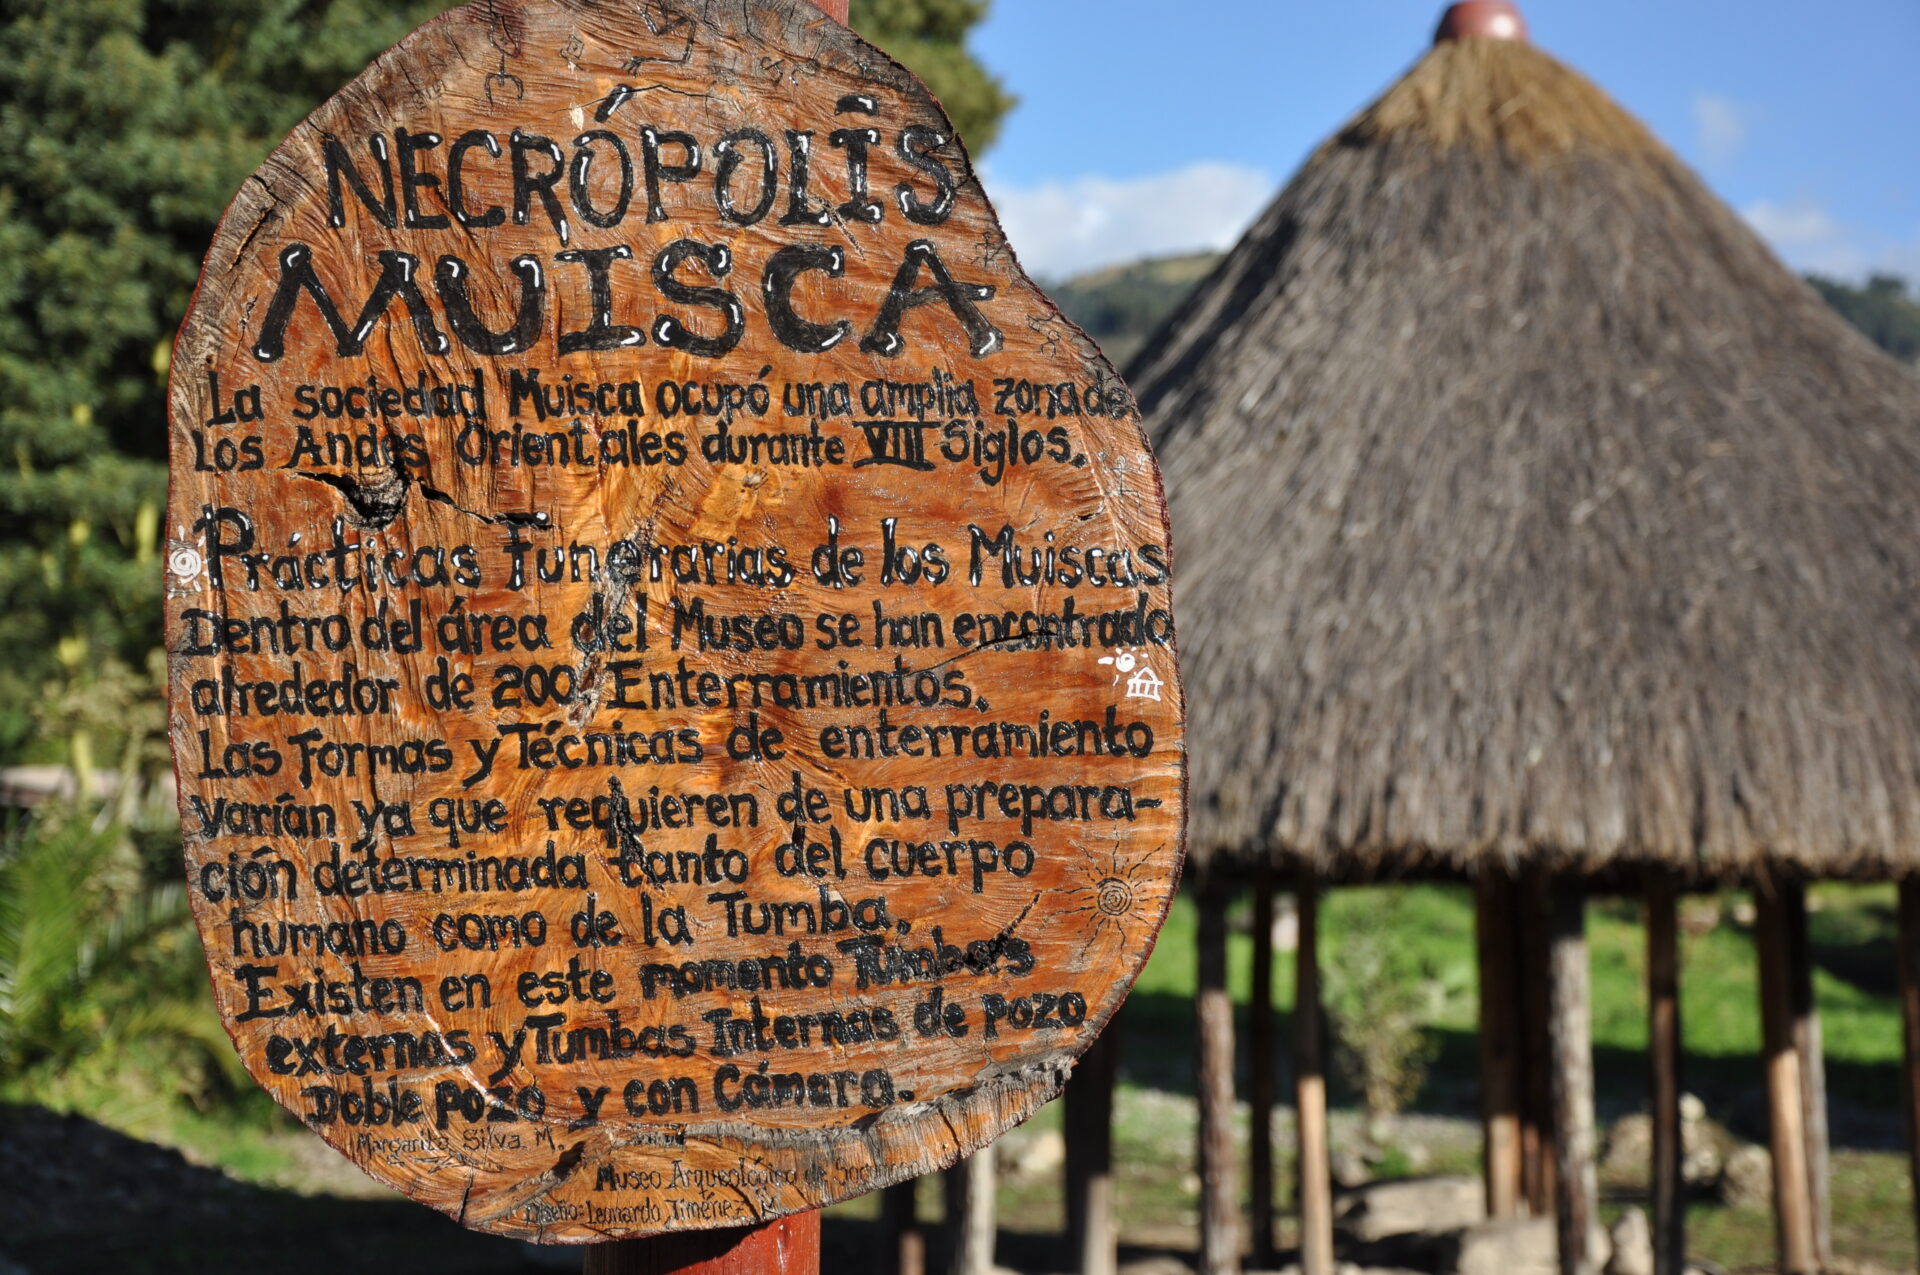 NECRÓPOLIS
MUISCA
La sociedad Muisca ocupó una amplia zona de
Los Andes Orientales durante VIII Siglos.
Prácticas Funerarias de los Muiscas
Dentro del área del Museo se han encontrado
alrededor de 200 Enterramientos.
Las Formas y Técnicas de enterramiento
varían ya que requieren de una prepara-
ción determinada tanto del cuerpo
humano como de la Tumba.
Existen en este momento Tumbas
externas y Tumbas Internas de pozo
Doble pozo y con Cámara.
Margarita Silva M.
Museo Arqueológico de
Diseño: Leonardo Jiménez M